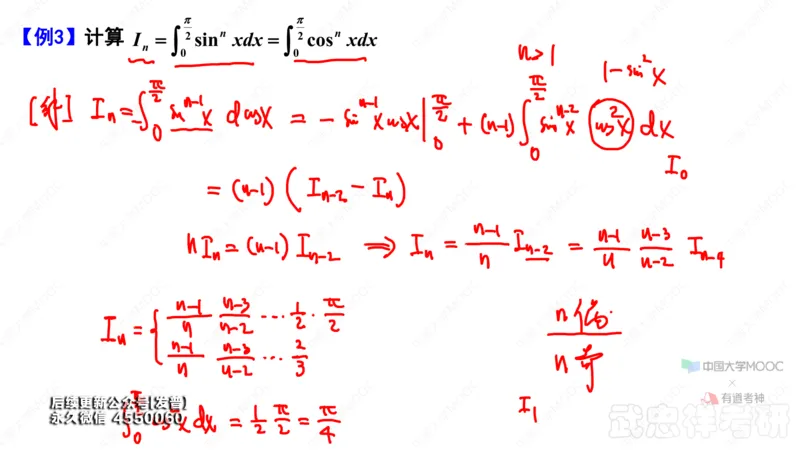 【例3】计算 I_n = ∫_0^{π/2} sin^n xdx = ∫_0^{π/2} cos^n xdx
n>1
1-sin²x
[解] I_n = -∫_0^{π/2} sin^{n-1}x dcosx = -sin^{n-1}x cosx |_0^{π/2} + (n-1)∫_0^{π/2} sin^{n-2}x cos²x dx
I_0
= (n-1)(I_{n-2} - I_n)
nI_n = (n-1)I_{n-2} ⇒ I_n = \frac{n-1}{n} I_{n-2} = \frac{n-1}{n} \frac{n-3}{n-2} I_{n-4}
I_n = { \frac{n-1}{n} \frac{n-3}{n-2} ⋯ \frac{1}{2} · \frac{π}{2}
\frac{n-1}{n} \frac{n-3}{n-2} ⋯ \frac{2}{3}
n偶
n奇
中国大学MOOC
×
有道考神
I_1
后续更新公众号[发普]
永久微信 4550060
x dx = \frac{1}{2} \frac{π}{2} = \frac{π}{4}
武忠祥考研